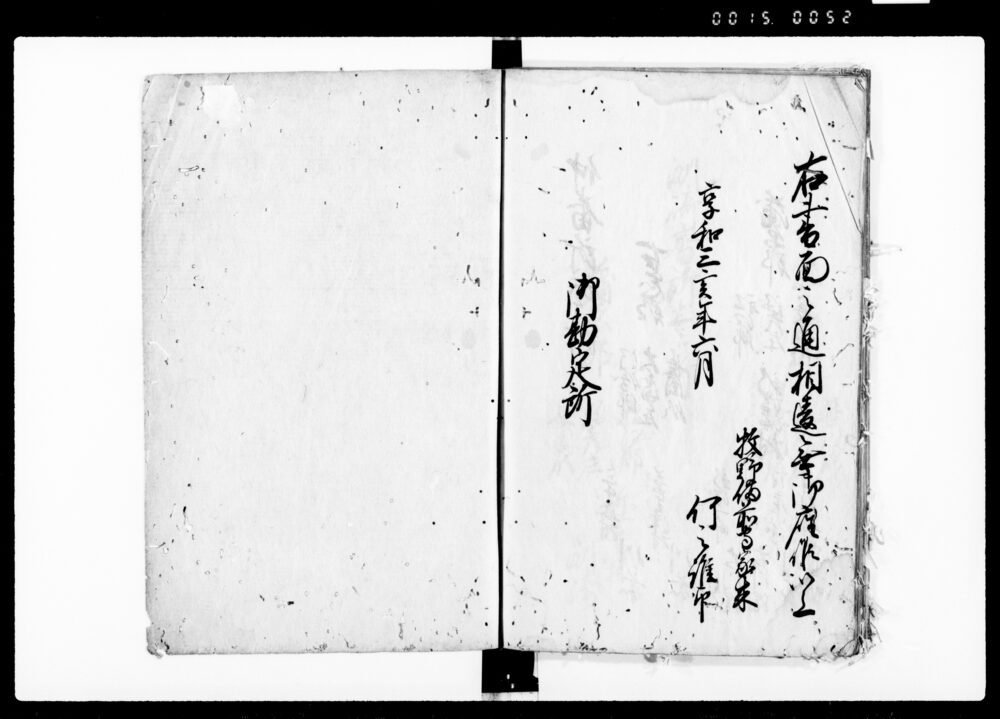 0015 0052
右書面之通相違無御座候以上
享和三亥年六月
牧野備前守家来
何之誰印
御勘定所